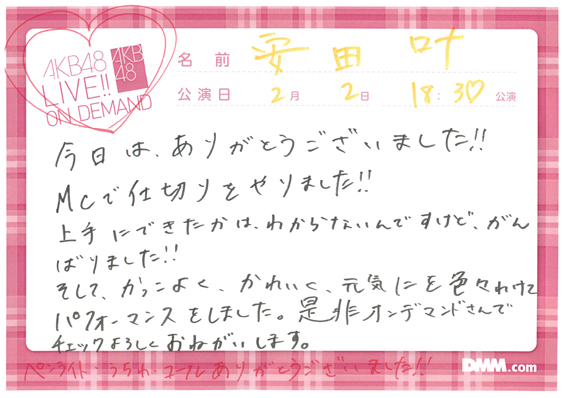 AKB48
LIVE!!
ON DEMAND
AKB
48
名前 安田 叶
公演日 2月 2日 18:30♡ 公演
今日は、ありがとうございました!!
MCで仕切りをやりました!!
上手にできたかは、わからないんですけど、がん
ばりました!!
そして、かっこよく、かわいく、元気にを色々わけて
パフォーマンスをしました。是非オンデマンドさんで
チェックよろしくおねがいします。
ペンライト・うちわ・コールありがとうございました!!
DMM.com